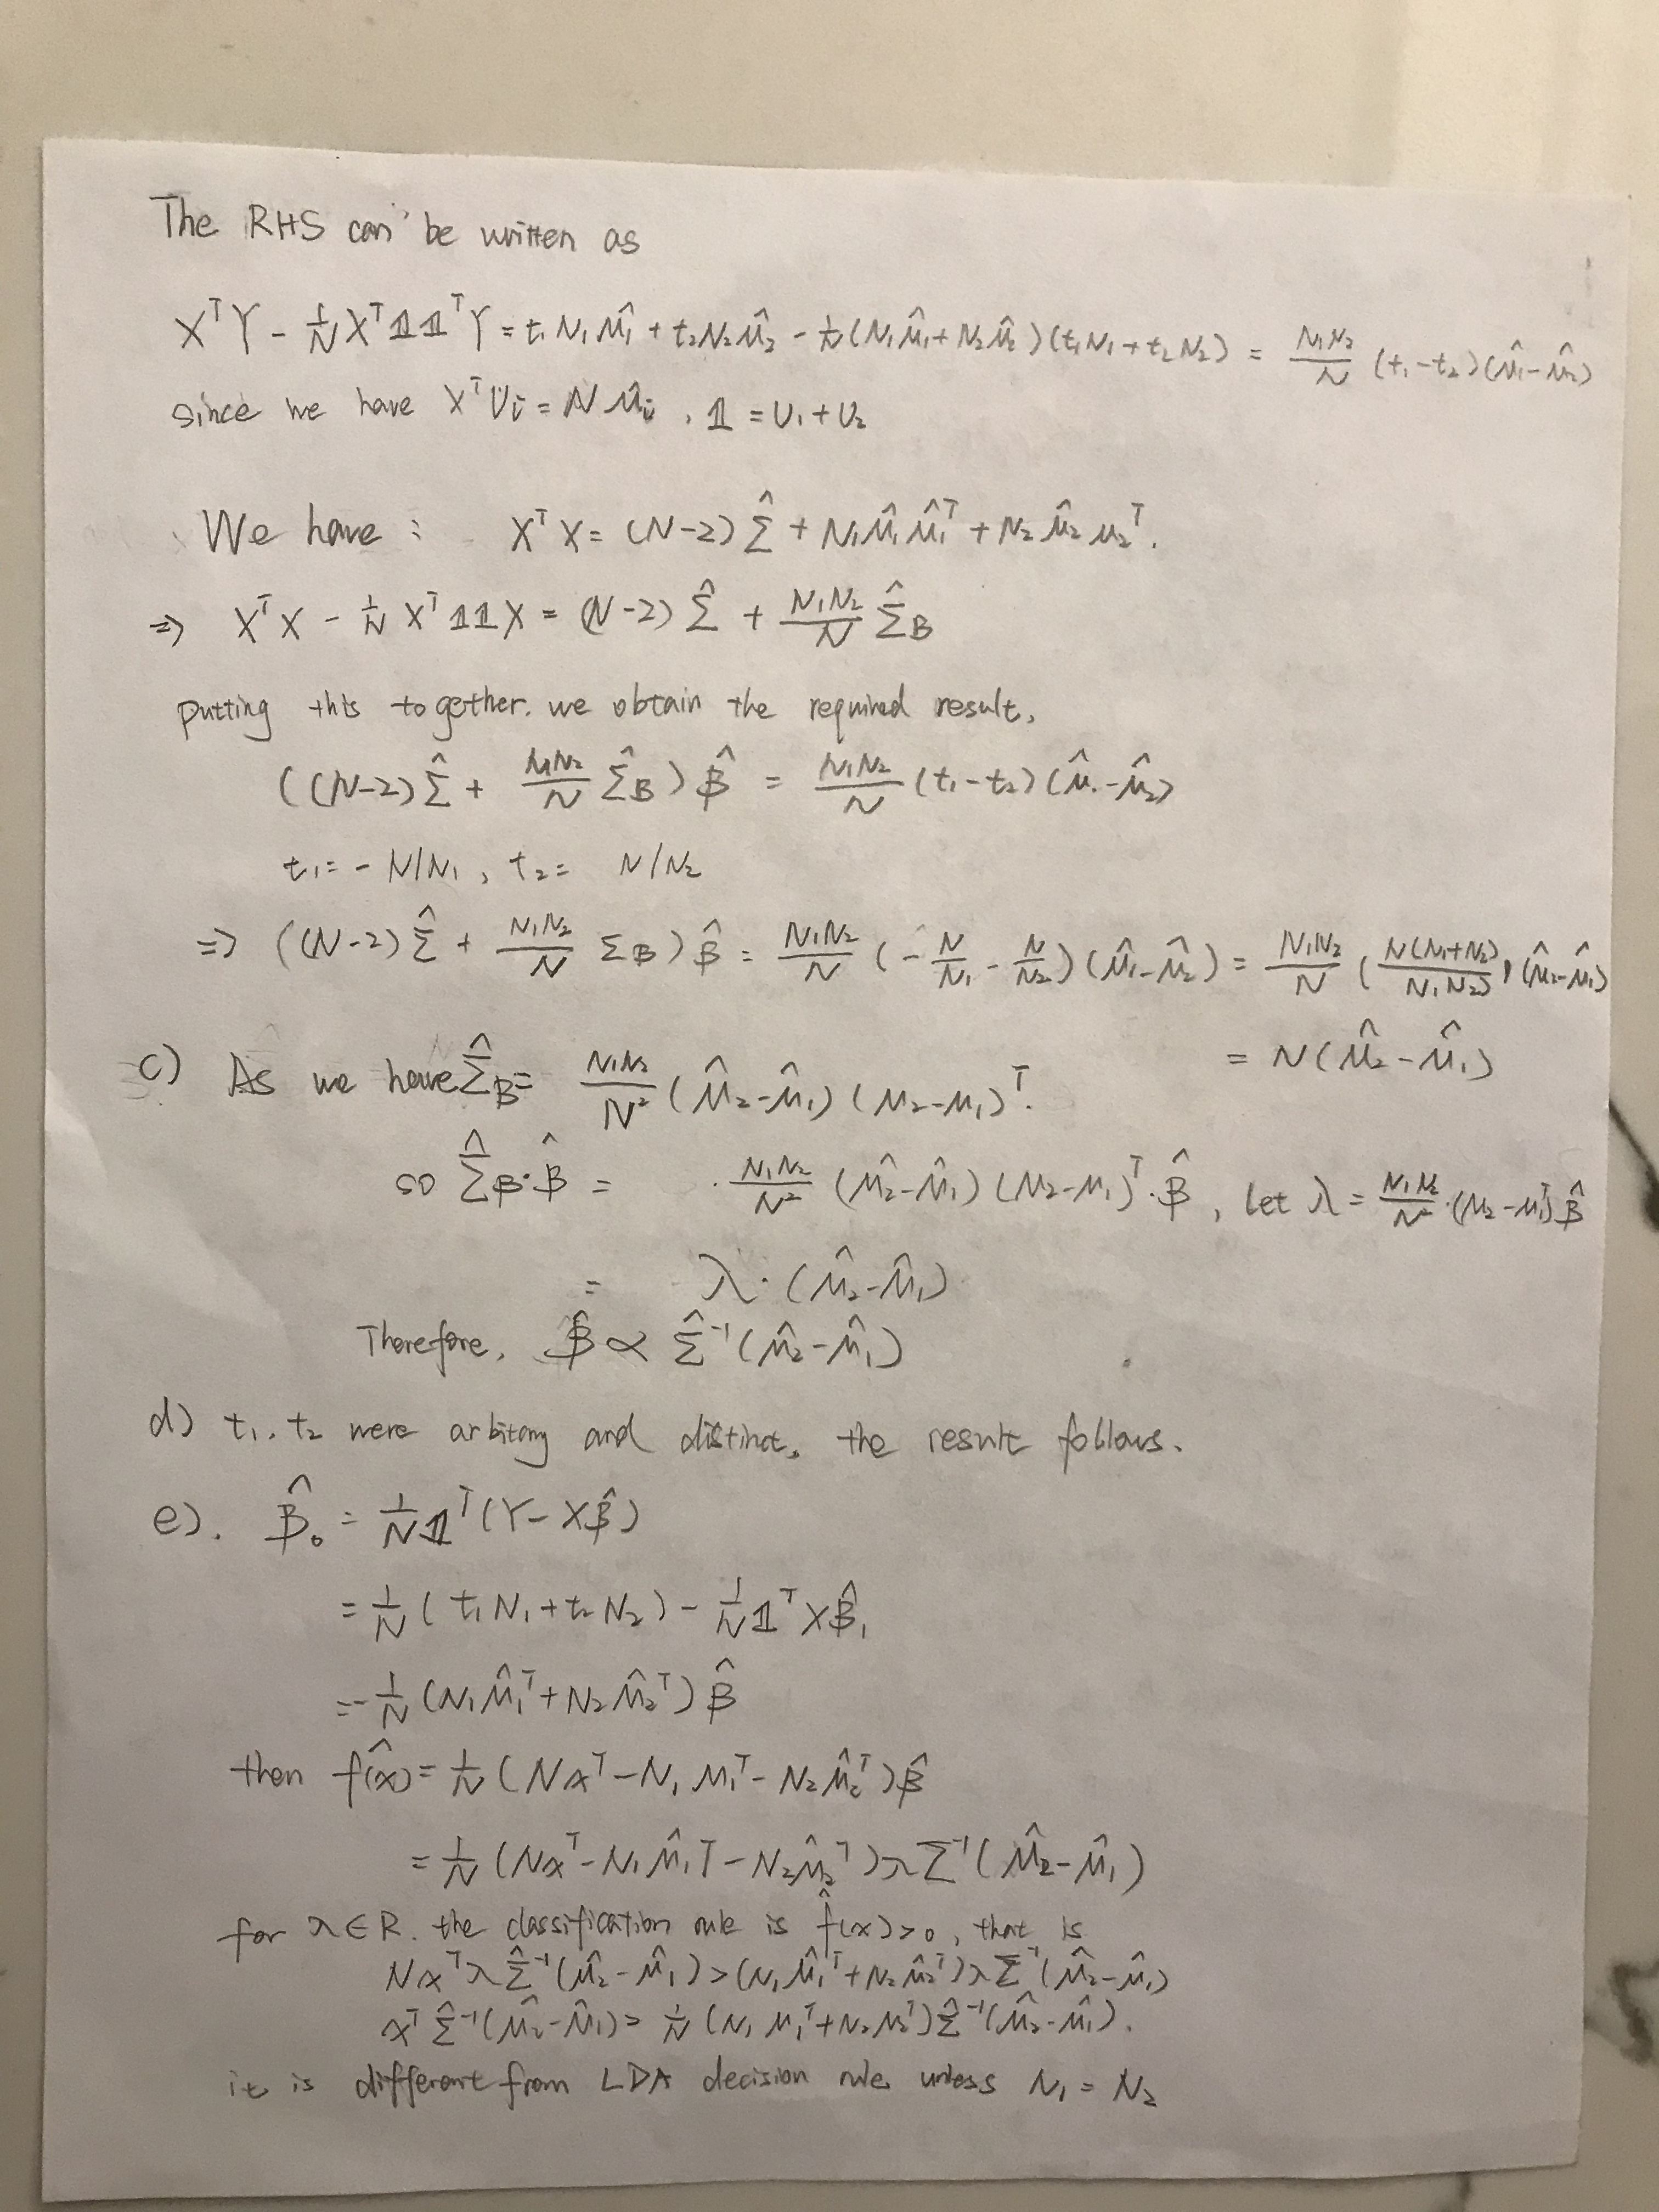 The RHS can be written as
X^T Y - 1/N X^T 𝟙𝟙^T Y = t₁ N₁ μ̂₁ + t₂ N₂ μ̂₂ - 1/N (N₁ μ̂₁ + N₂ μ̂₂)(t₁ N₁ + t₂ N₂) = N₁N₂/N (t₁ - t₂)(μ̂₁ - μ̂₂)
since we have X^T Uᵢ = N μ̂ᵢ , 𝟙 = U₁ + U₂
We have : X^T X = (N-2) Σ̂ + N₁ μ̂₁ μ̂₁^T + N₂ μ̂₂ μ₂^T .
⇒ X^T X - 1/N X^T 𝟙𝟙 X = (N-2) Σ̂ + N₁N₂/N Σ̂_B
putting this together. we obtain the required result,
((N-2) Σ̂ + N₁N₂/N Σ̂_B) β̂ = N₁N₂/N (t₁ - t₂)(μ̂₁ - μ̂₂)
t₁ = - N/N₁ , t₂ = N/N₂
⇒ ((N-2) Σ̂ + N₁N₂/N Σ_B) β̂ = N₁N₂/N (- N/N₁ - N/N₂)(μ̂₁ - μ̂₂) = N₁N₂/N (N(N₁+N₂)/N₁N₂) (μ̂₂ - μ̂₁)
= N(μ̂₂ - μ̂₁)
c) As we have Σ̂_B = N₁N₂/N² (μ̂₂ - μ̂₁)(μ₂ - μ₁)^T .
so Σ̂_B · β̂ = N₁N₂/N² (μ̂₂ - μ̂₁)(μ₂ - μ₁)^T · β̂ , let λ = N₁N₂/N² · (μ₂ - μ₁^T) β̂
= λ · (μ̂₂ - μ̂₁)
Therefore, β̂ ∝ Σ̂⁻¹ (μ̂₂ - μ̂₁)
d) t₁ . t₂ were arbitary and distinct, the result follows.
e). β̂₀ = 1/N 𝟙^T (Y - Xβ̂)
= 1/N (t₁ N₁ + t₂ N₂) - 1/N 𝟙^T X β̂₁
= - 1/N (N₁ μ̂₁^T + N₂ μ̂₂^T) β̂
then f̂(x) = 1/N (N x^T - N₁ μ₁^T - N₂ μ̂₂^T) β̂
= 1/N (N x^T - N₁ μ̂₁^T - N₂ μ̂₂^T) λ Σ⁻¹ (μ̂₂ - μ̂₁)
for λ ∈ R. the classification rule is f̂(x) > 0, that is
N x^T λ Σ̂⁻¹ (μ̂₂ - μ̂₁) > (N₁ μ̂₁^T + N₂ μ̂₂^T) λ Σ⁻¹ (μ̂₂ - μ̂₁)
x^T Σ̂⁻¹ (μ̂₂ - μ̂₁) > 1/N (N₁ μ₁^T + N₂ μ₂^T) Σ̂⁻¹ (μ̂₂ - μ̂₁) .
it is different from LDA decision rule unless N₁ = N₂